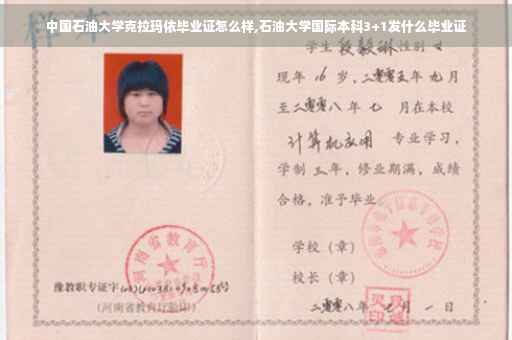 中国石油大学克拉玛依毕业证怎么样,石油大学国际本科3+1发什么毕业证
学生 段毅琳 性别 女
现年 16 岁，二零零五年 九月
至二零零八年 七 月在本校
计算机应用 专业学习，
学制 三年，修业期满，成绩
合格，准予毕业
学校（章）
校长（章）
河南省教育厅
豫教职专证字
（河南省教育厅验印）
二零零八年 月 一 日